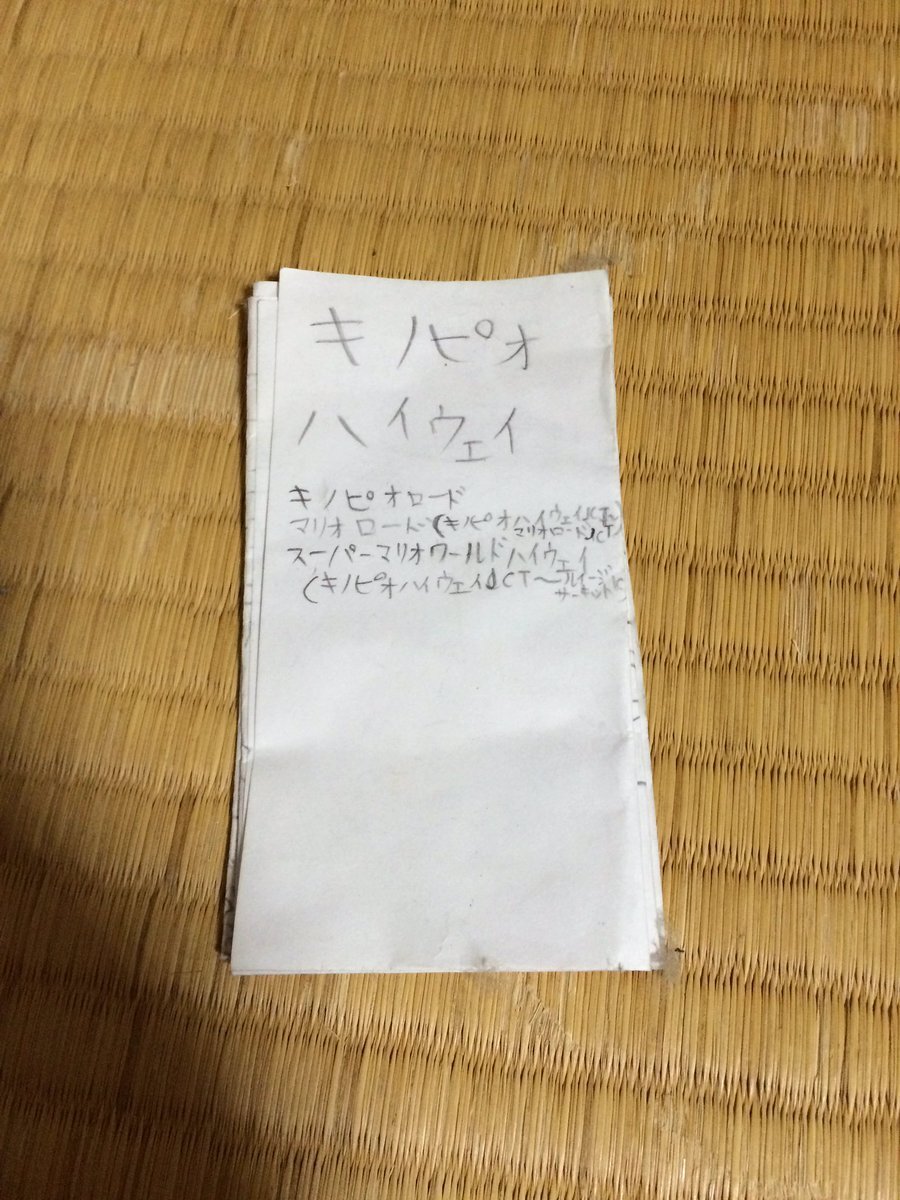 キノピオ
ハイウェイ
キノピオロード
マリオロード(キノピオハイウェイJCT〜
マリオロードJCT)
スーパーマリオワールドハイウェイ
(キノピオハイウェイJCT〜
サーキット